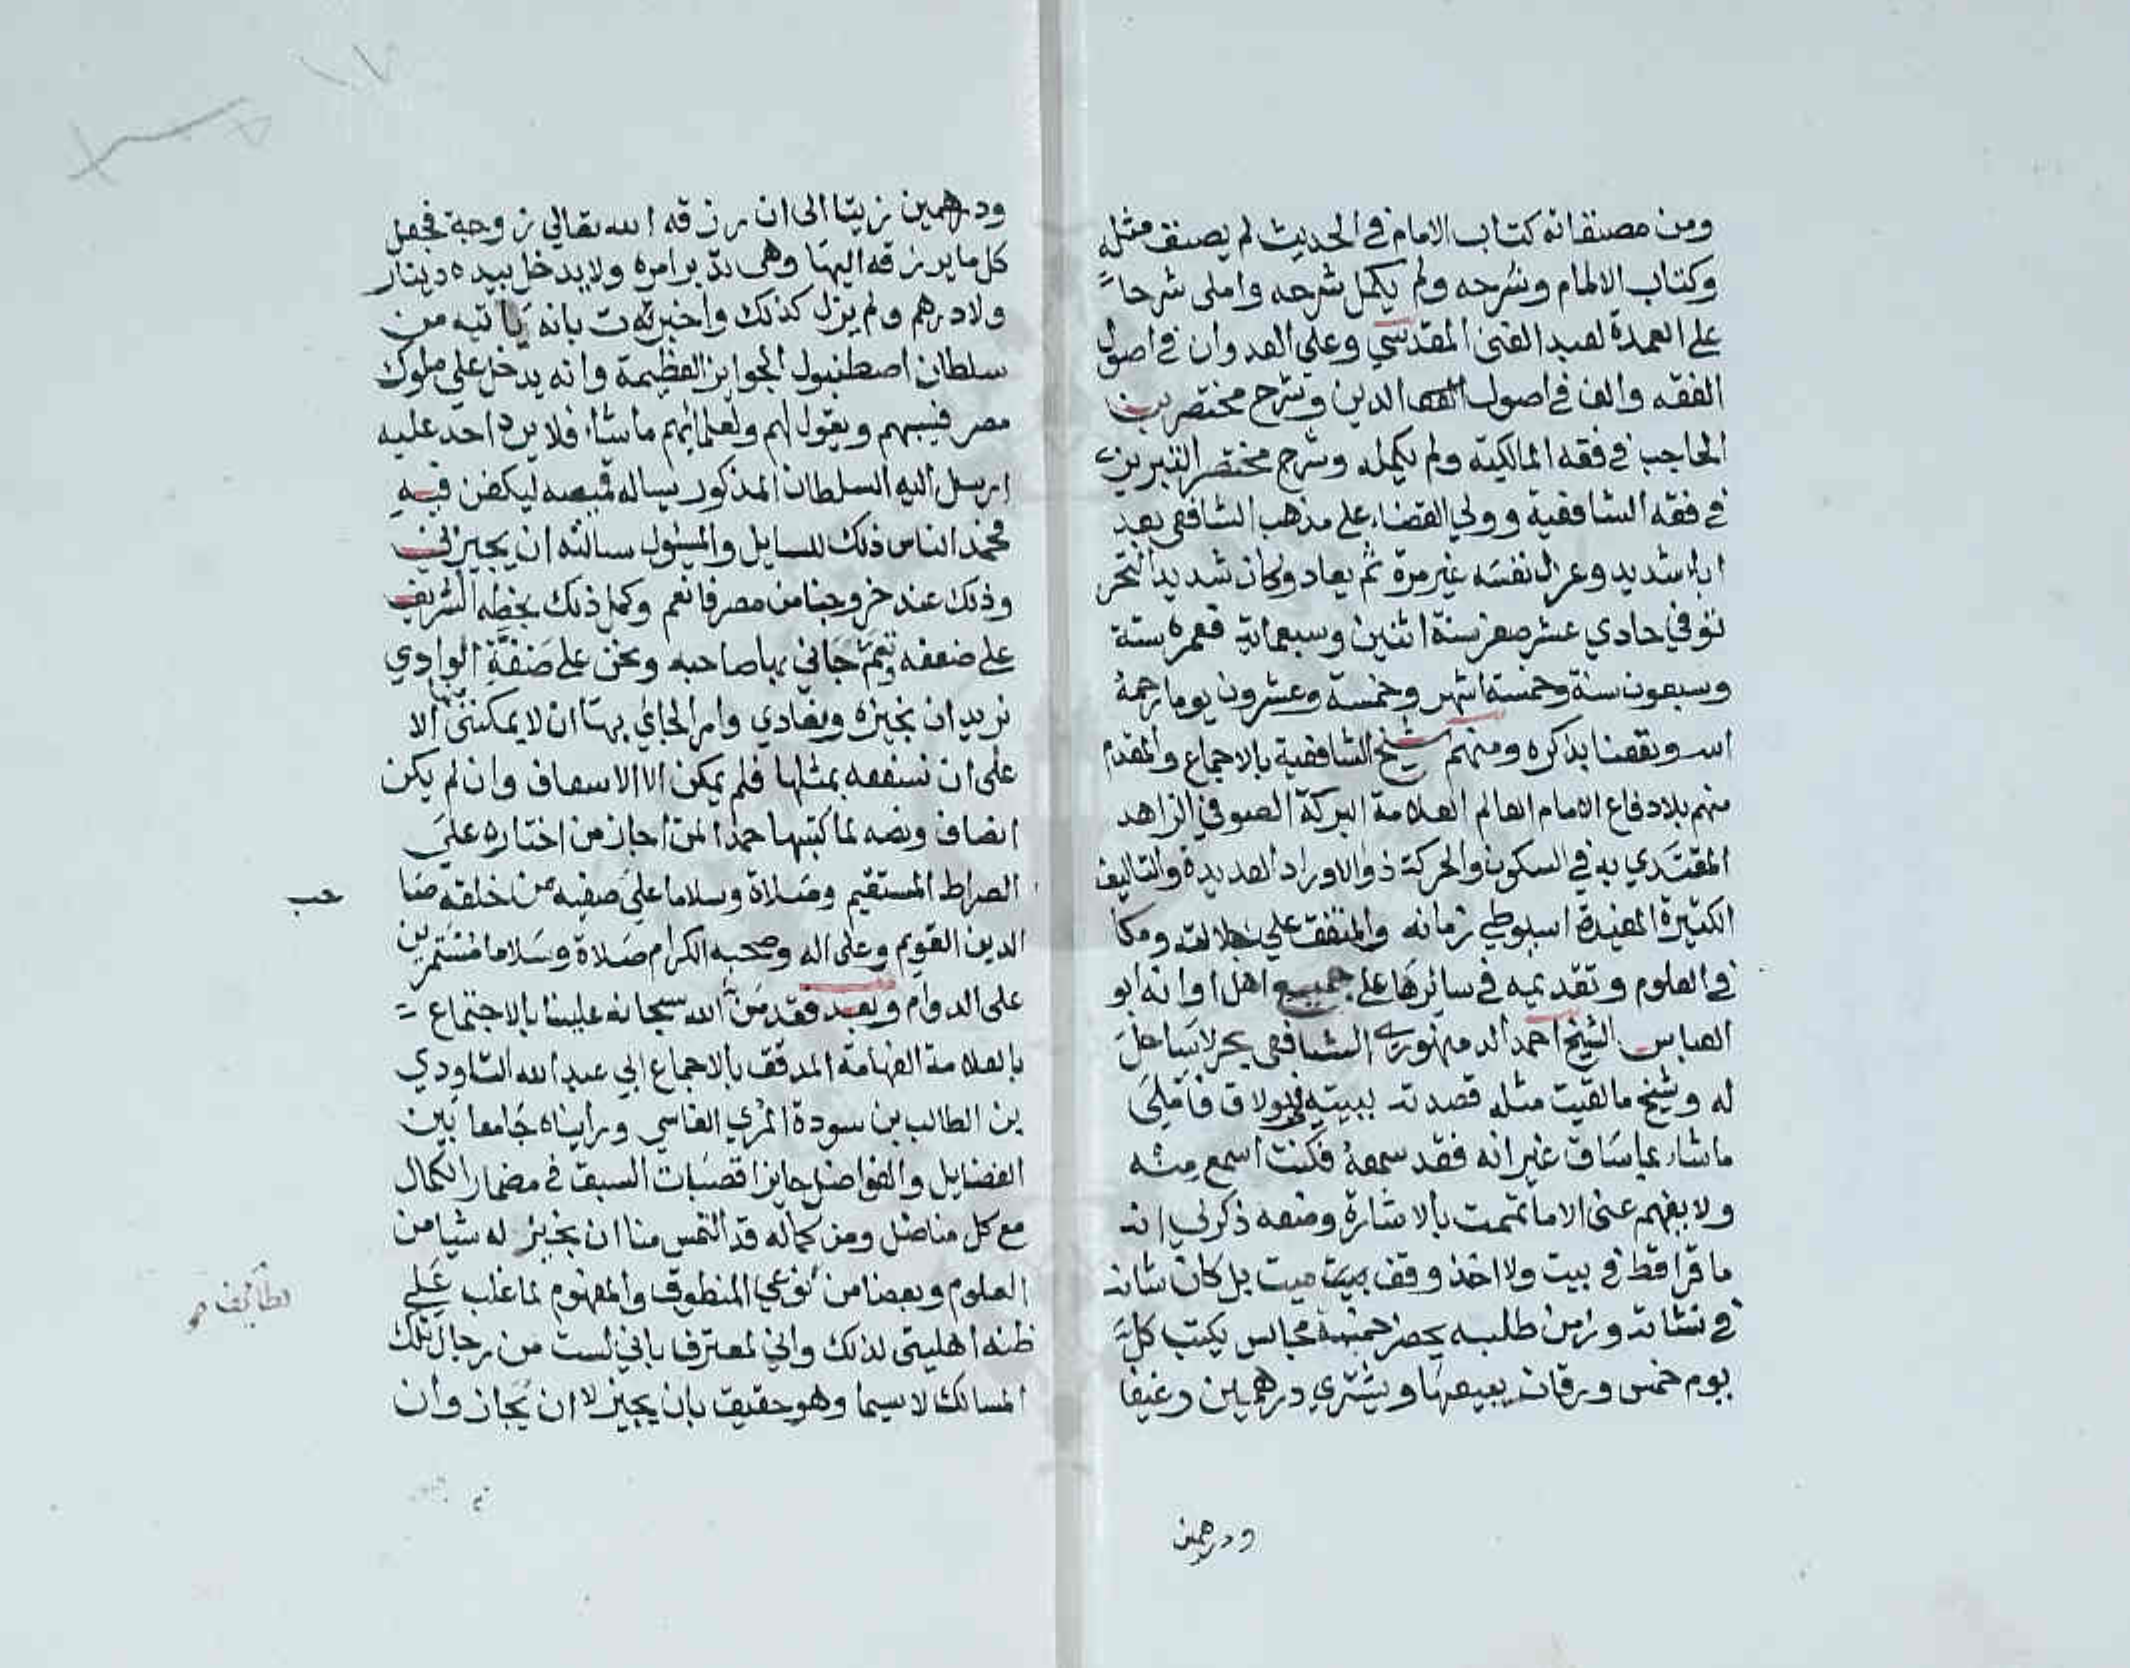 ومن مصنفاته كتاب الامام في الحديث لم يصنف مثله
وكتاب الالمام وشرحه ولم يكمل شرحه واملى شرحا
على العمدة لعبد الغنى المقدسي وعلي العدوان في اصول
الفقه والف في اصول الدين وشرح مختصر بن
الحاجب في فقه المالكية ولم يكمله وشرح مختصر التبريزي
في فقه الشافعية وولي القضاء على مذهب الشافعي بعد
اباء شديد وعزل نفسه غير مرة ثم يعاد وكان شديد التحر
توفي حادي عشر صفر سنة اثنين وسبعماية فعمره ستة
وسبعون سنة وخمسة اشهر وخمسة وعشرون يوما رحمه
الله ونفعنا بذكره ومنهم شيخ الشافعية بالاجماع والمقدم
منهم بلا دفاع الامام العالم العلامة البركة الصوفي الزاهد
المقتدي به في السكون والحركة ذو الاوراد العديدة والتاليف
الكثيرة المفيدة اسيوطي زمانه والمتفق علي جلالته ومكا
في العلوم وتقديمه في سائرها على جميع اهل اوانه ابو
العباس الشيخ احمد الدمنهوري الشافعي بحر لا ساحل
له وشيخ ما لقيت مثله قصدته ببيته ببولاق فأملى
ما شاء بما ساق غير انه فقد سمعه فكنت اسمع منه
ولا يفهم عنى الا ما تممت بالاشارة وضعفه ذكر لي انه
ما قرا قط في بيت ولا اخذ وقف ميت بل كان شانه
في نشاته وزمن طلبه يحضر خمسة مجالس يكتب كل
يوم خمس ورقات يبيعها ويشتري درهمين رغيفا
ودرهمين
ودرهمين زيتا الى ان رزقه الله تعالي زوجة فجعل
كل ما يرزقه اليها وهى تدبر امره ولا يدخل بيده دينار
ولا درهم ولم يزل كذلك واخبرت بانه ياتيه من
سلطان اصطنبول الجوايز العظيمة وانه يدخل علي ملوك
مصر فيسبهم ويقول لهم ولعلمائهم ما شاء فلا يرد احد عليه
ارسل اليه السلطان المذكور يساله قميصه ليكفن فيه
فحمد الناس ذلك للسايل والمسئول سالته ان يجيزني
وذلك عند خروجنا من مصر فانعم وكمل ذلك بخطه الشريف
على ضعفه جاني بها صاحبه ونحن على ضفة الوادي
نريد ان نجيزه ونغادي وامر الجاي بها ان لا يمكننى الا
على ان نسعفه بمثلها فلم يمكن الا الاسعاف وان لم يكن
انصاف ونصه لما كتبها حمدا لمن اجاز من اختاره على
الصراط المستقيم وصلاة وسلاما على صفيه من خلقه صا
حب
الدين القويم وعلى اله وصحبه الكرام صلاة وسلاما مستمرين
على الدوام وبعد فقد من الله سبحانه علينا بالاجتماع
بالعلامة الفهامة المدقق بالاجماع ابي عبد الله التاودي
بن الطالب بن سودة المري الفاسي ورايناه جامعا بين
الفضايل والفواضل حايزا قصبات السبق في مضمار الكمال
مع كل مناضل ومن كماله قد التمس منا ان نجيز له شيا من
العلوم وبعضا من نوعي المنطوق والمفهوم لما غلب على
ظنه اهليتى لذلك واني لمعترف باني لست من رجال تلك
المسالك لا سيما وهو حقيق بان يجيز لا ان يجاز وان